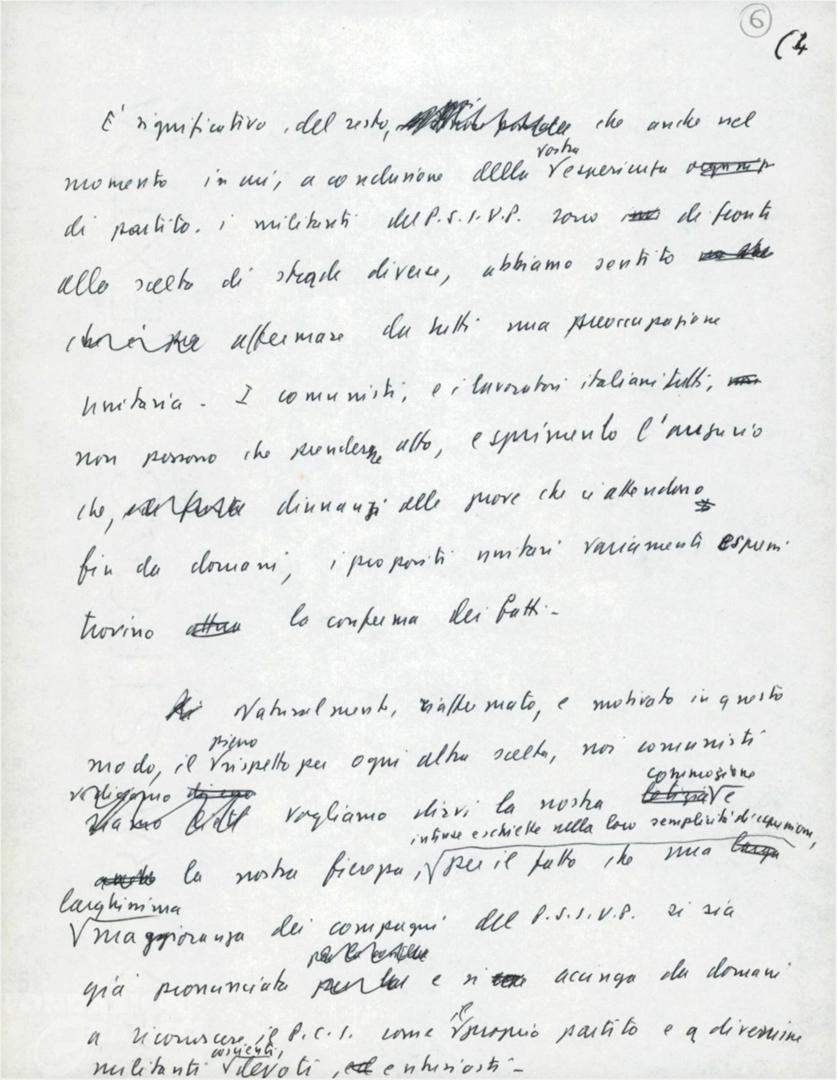 6
(4
E' significativo, del resto, che anche nel
vostra
momento in cui, a conclusione della esperienza
di partito, i militanti del P.S.I.U.P. sono di fronte
alla scelta di strade diverse, abbiamo sentito
affermare da tutti una preoccupazione
unitaria. I comunisti, e i lavoratori italiani tutti,
non possono che prenderne atto, esprimendo l'augurio
che, dinnanzi alle prove che ci attendono
fin da domani, i propositi unitari variamente espressi
trovino la conferma dei fatti.
Naturalmente, riaffermato, e motivato in questo
pieno
modo, il rispetto per ogni altra scelta, noi comunisti
commozione
vogliamo dirvi la nostra e
intense e schiette nella loro semplicità di espressione,
la nostra fierezza, per il fatto che una
larghissima
maggioranza dei compagni del P.S.I.U.P. si sia
già pronunciata e si accinga da domani
il
a riconoscere il P.C.I. come proprio partito e a divenirne
coscienti,
militanti devoti, entusiasti.